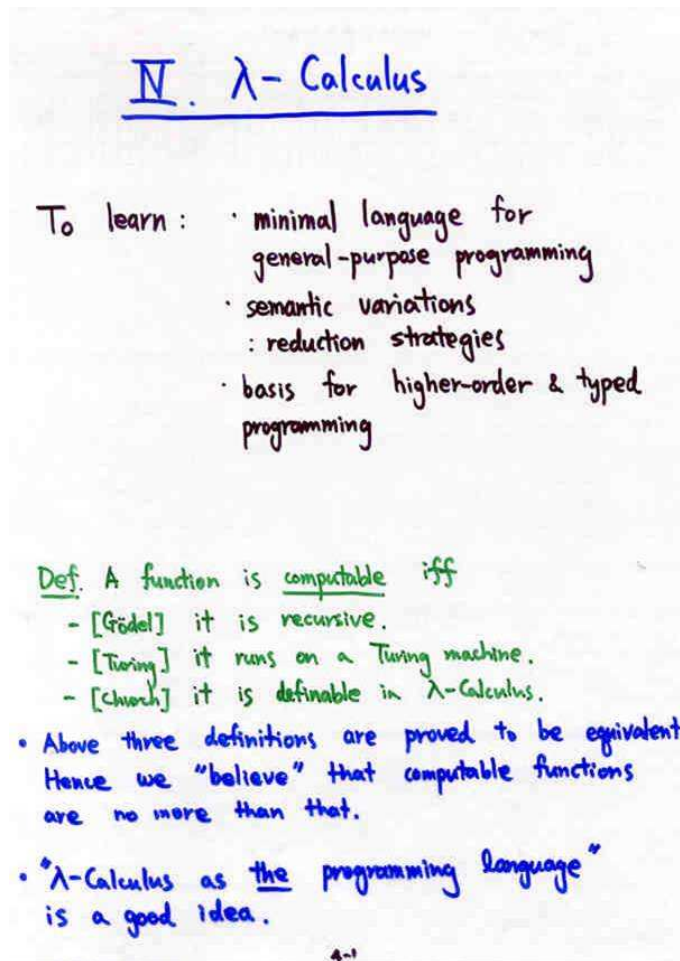 IV. λ- Calculus
To learn : · minimal language for
general-purpose programming
· semantic variations
: reduction strategies
· basis for higher-order & typed
programming
Def. A function is computable iff
- [Gödel] it is recursive.
- [Turing] it runs on a Turing machine.
- [Church] it is definable in λ-Calculus.
• Above three definitions are proved to be equivalent
Hence we "believe" that computable functions
are no more than that.
• "λ-Calculus as the programming language"
is a good idea.
4-1